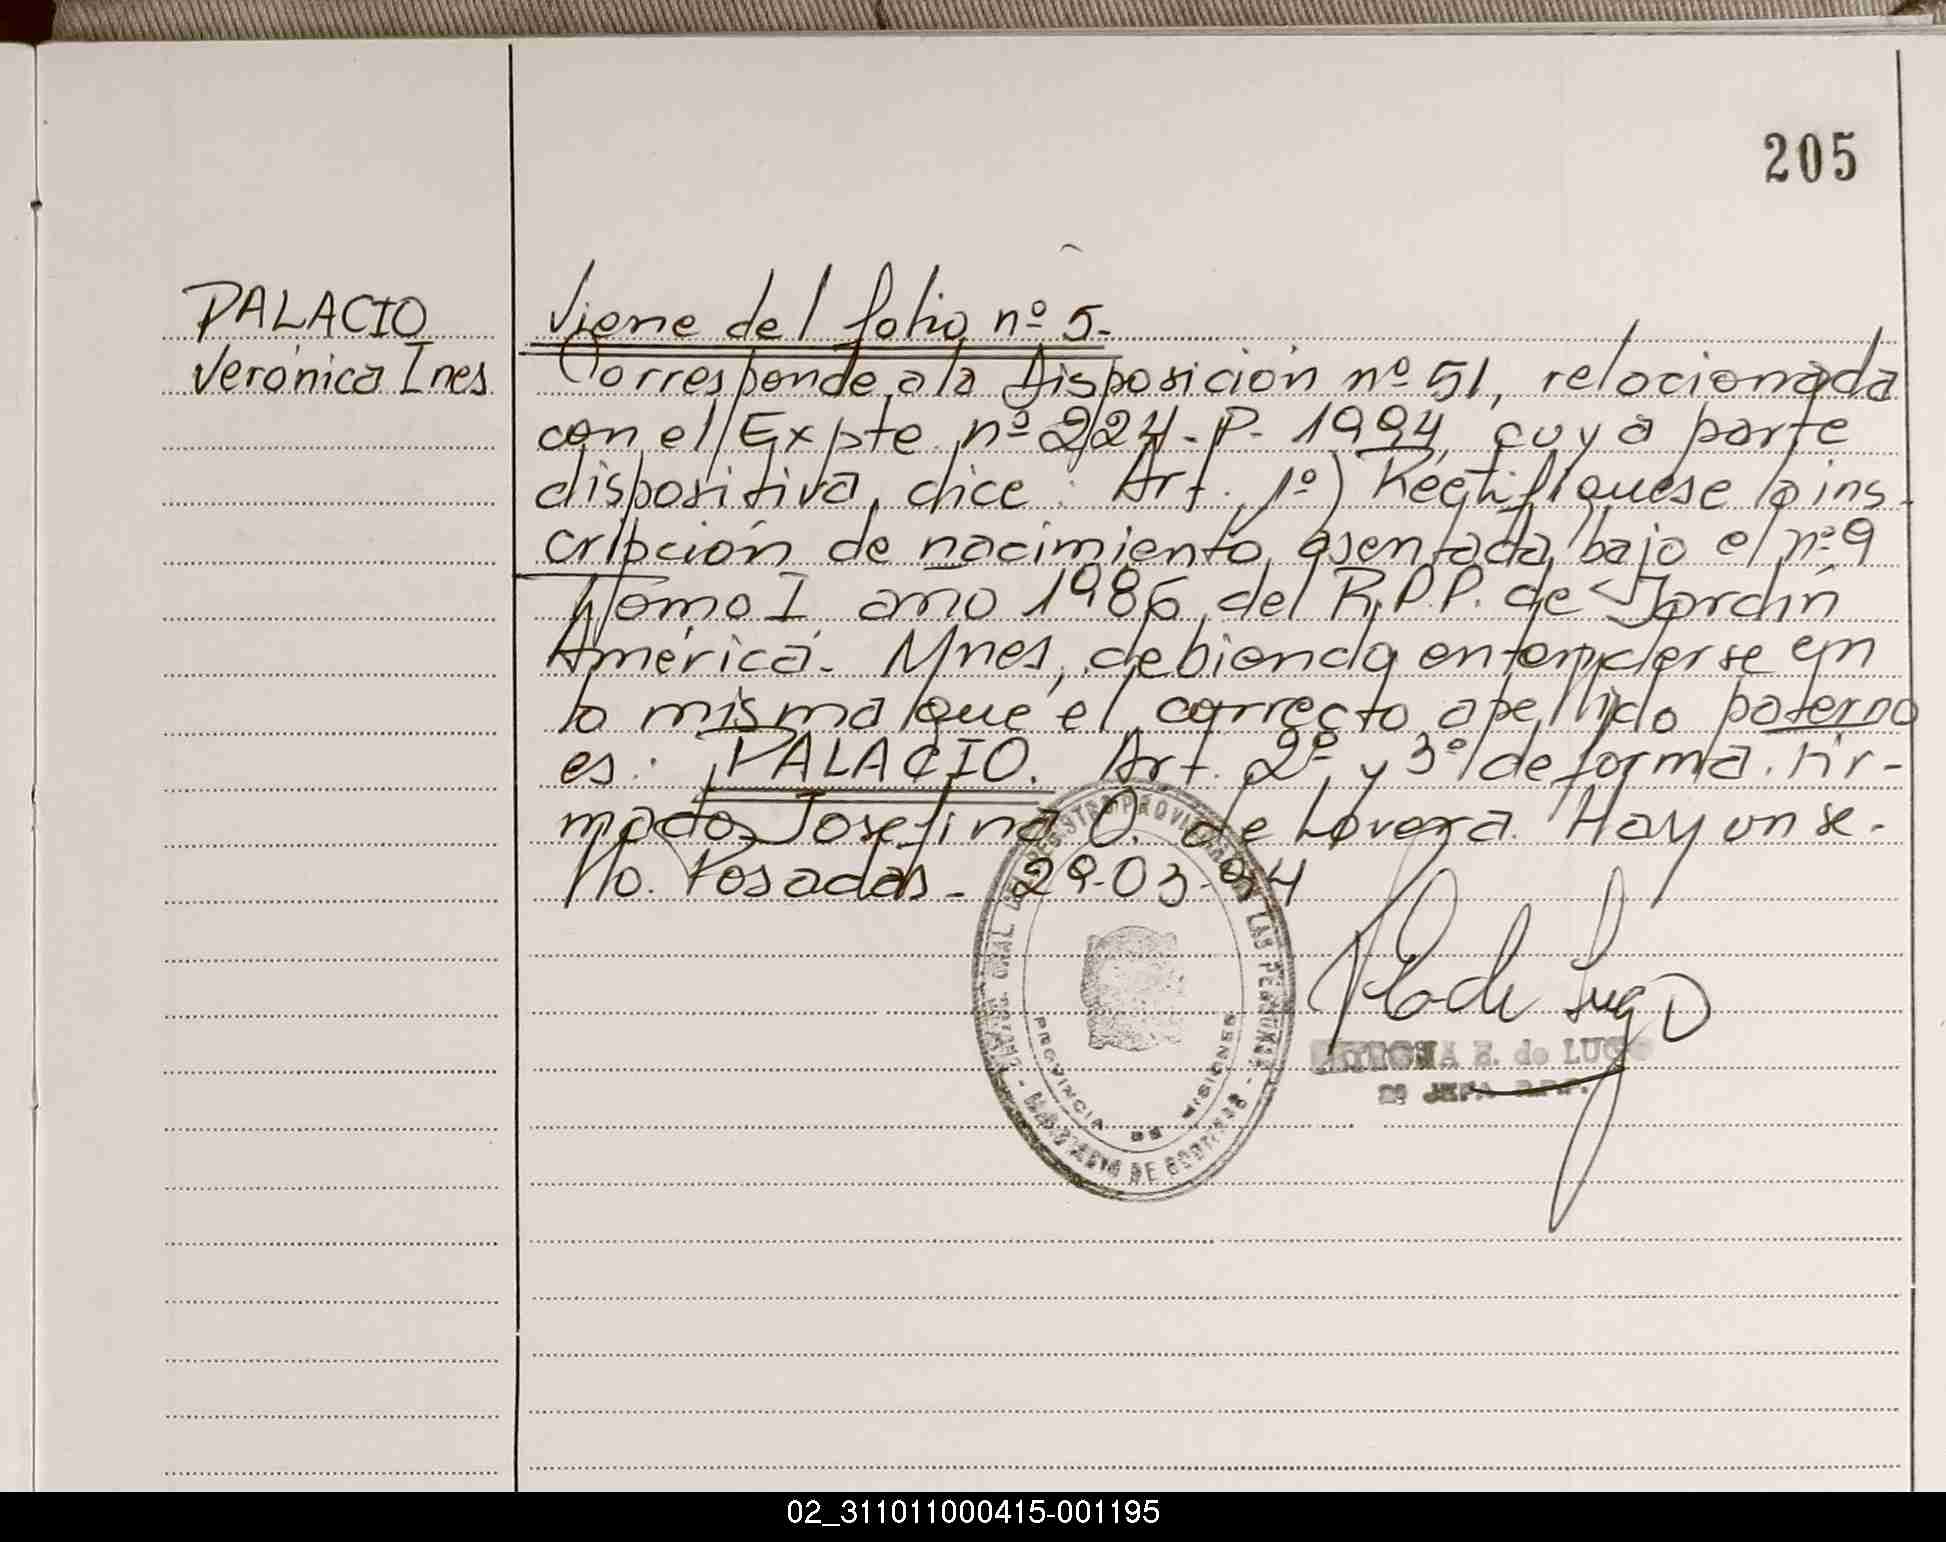 205
PALACIO
Verónica Ines
Viene del folio nº 5.-
Corresponde a la Disposición nº 51, relacionada
con el Expte. nº 224-P-1994, cuya parte
dispositiva, dice: Art. 1º) Rectifíquese la ins-
cripción de nacimiento, asentada bajo el nº 9
Tomo I, año 1986, del R.P.P. de Jardín
América. Mnes, debiendo entenderse en
la misma que el correcto apellido paterno
es: PALACIO. Art. 2º y 3º de forma. Fir-
mado Josefina O. de Lovera. Hay un se-
llo. Posadas - 29-03-94
LAS PERSONAS
PROVINCIA DE MISIONES
E. de LUGO
JEFA R.P.P.
02_311011000415-001195